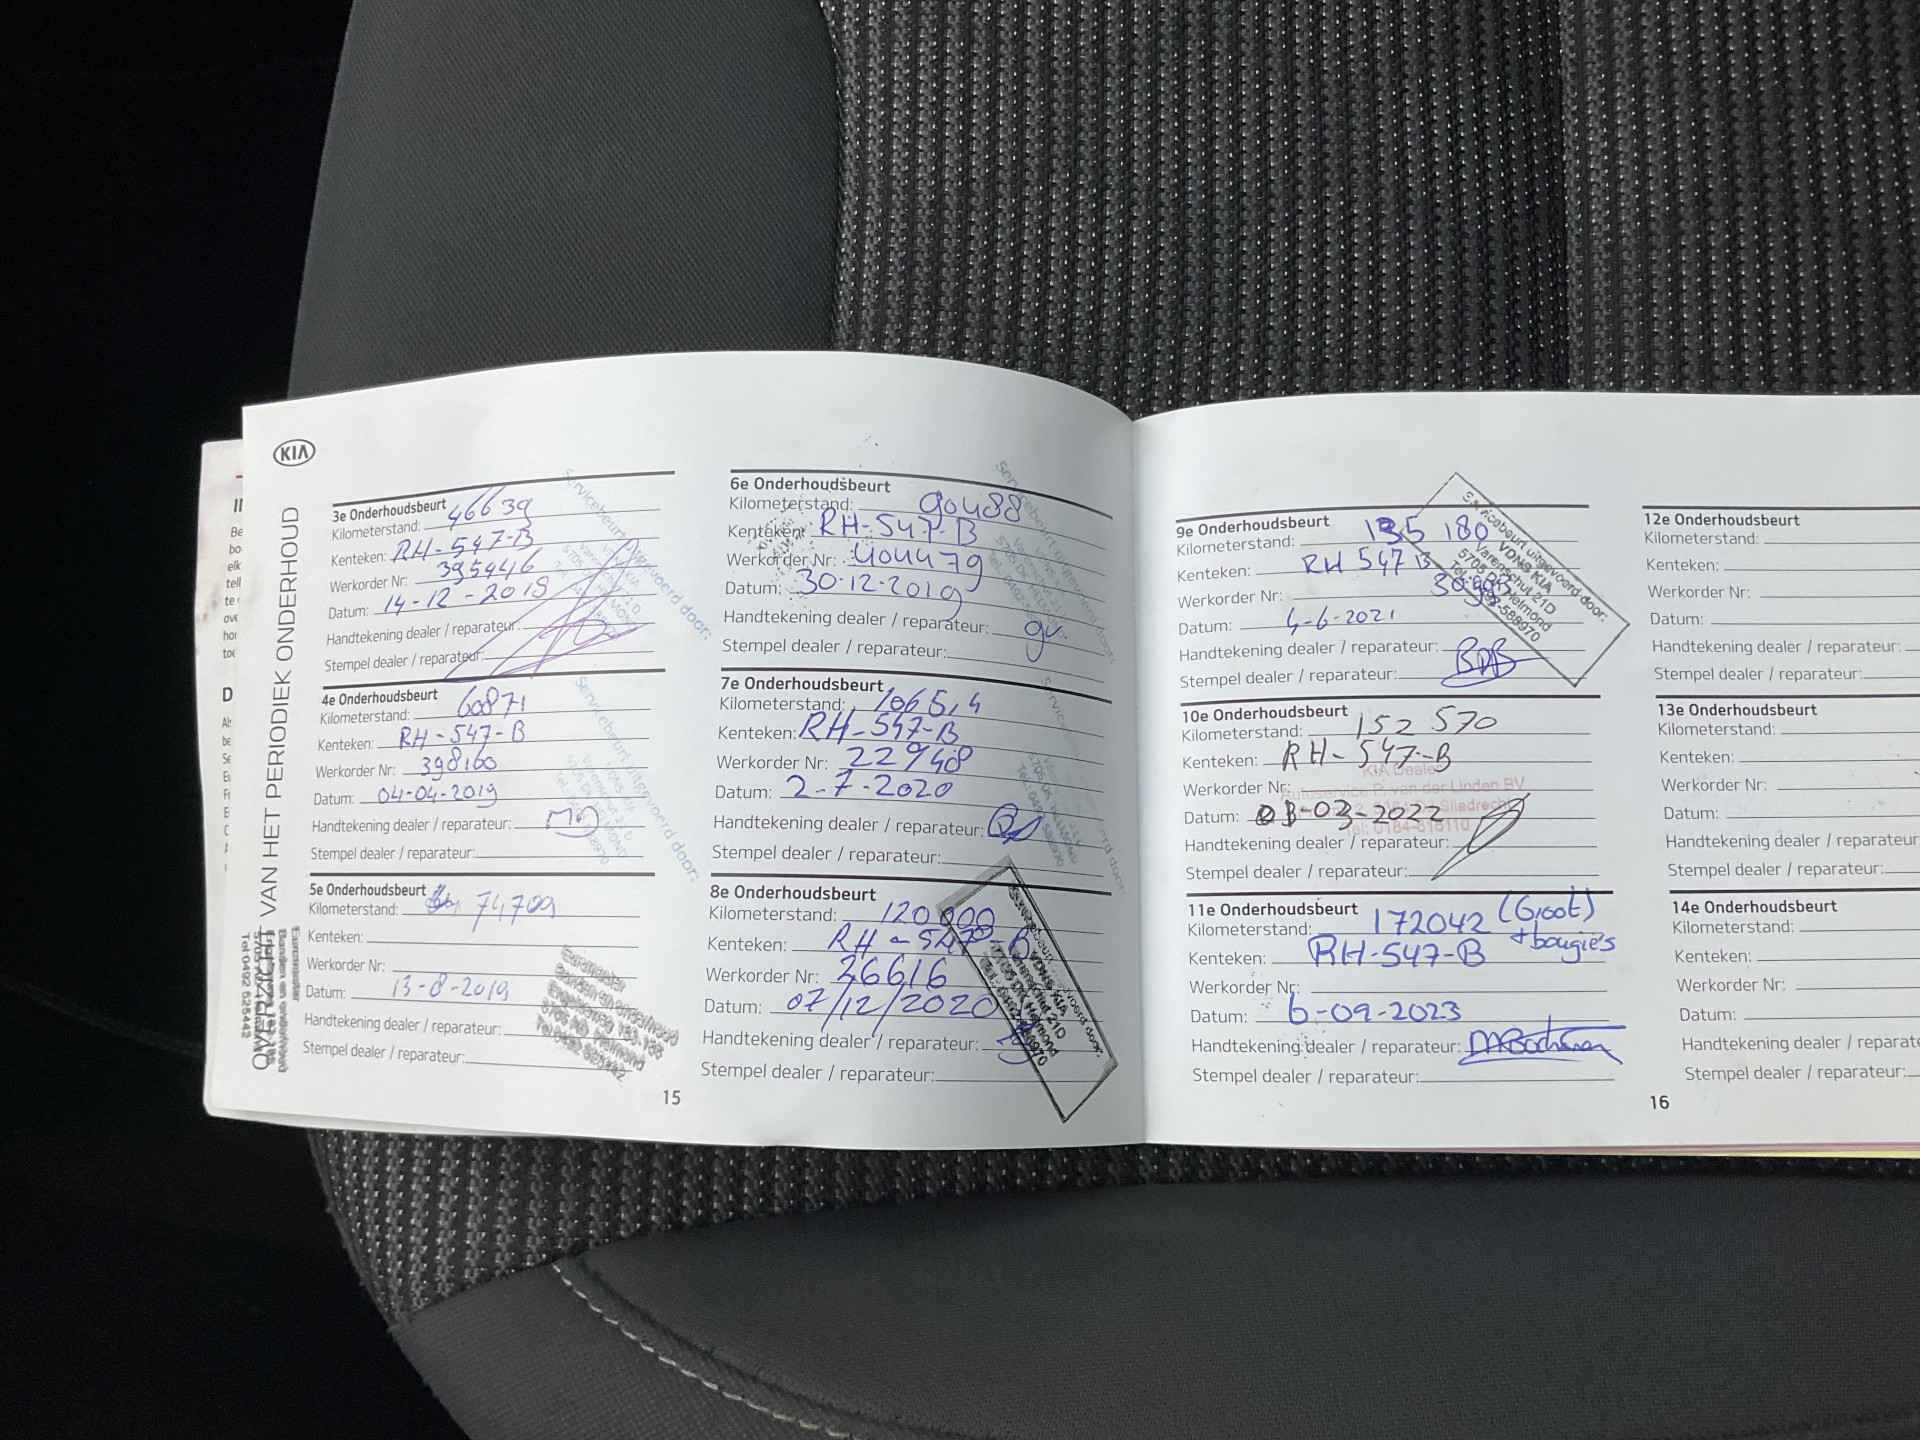 KIA
OVERZICHT VAN HET PERIODIEK ONDERHOUD
3e Onderhoudsbeurt
Kilometerstand: 46639
Kenteken: RH-547-B
Werkorder Nr: 395446
Datum: 14-12-2018
Handtekening dealer / reparateur:
Stempel dealer / reparateur:
4e Onderhoudsbeurt
Kilometerstand: 60871
Kenteken: RH-547-B
Werkorder Nr: 398160
Datum: 04-04-2019
Handtekening dealer / reparateur:
Stempel dealer / reparateur:
5e Onderhoudsbeurt
Kilometerstand: 74709
Kenteken:
Werkorder Nr:
Datum: 13-8-2019
Handtekening dealer / reparateur:
Stempel dealer / reparateur:
Tel: 0492 525442
15
6e Onderhoudsbeurt
Kilometerstand: 90488
Kenteken: RH-547-B
Werkorder Nr: 404479
Datum: 30-12-2019
Handtekening dealer / reparateur:
Stempel dealer / reparateur:
Servicebeurt uitgevoerd door:
7e Onderhoudsbeurt
Kilometerstand:
Kenteken: RH-547-B
Werkorder Nr: 22948
Datum: 2-7-2020
Handtekening dealer / reparateur:
Stempel dealer / reparateur:
8e Onderhoudsbeurt
Kilometerstand: 120000
Kenteken: RH-547-B
Werkorder Nr: 26616
Datum: 07/12/2020
Handtekening dealer / reparateur:
Stempel dealer / reparateur:
9e Onderhoudsbeurt
Kilometerstand: 135 180
Kenteken: RH 547 B
Werkorder Nr:
Datum: 4-6-2021
Handtekening dealer / reparateur:
Stempel dealer / reparateur:
Servicebeurt uitgevoerd door:
VDNS KIA
Varenschut 21D
5705 DK Helmond
Tel. 0492-588970
10e Onderhoudsbeurt
Kilometerstand: 152 570
Kenteken: RH-547-B
Werkorder Nr:
Datum: 03-03-2022
Handtekening dealer / reparateur:
Stempel dealer / reparateur:
KIA Dealer
Autoservice P. van der Linden BV
Sliedrecht
11e Onderhoudsbeurt
Kilometerstand: 172042 (Groot)
+ bougies
Kenteken: RH-547-B
Werkorder Nr:
Datum: 6-09-2023
Handtekening dealer / reparateur:
Stempel dealer / reparateur:
16
12e Onderhoudsbeurt
Kilometerstand:
Kenteken:
Werkorder Nr:
Datum:
Handtekening dealer / reparateur:
Stempel dealer / reparateur:
13e Onderhoudsbeurt
Kilometerstand:
Kenteken:
Werkorder Nr:
Datum:
Handtekening dealer / reparateur
Stempel dealer / reparateur:
14e Onderhoudsbeurt
Kilometerstand:
Kenteken:
Werkorder Nr:
Datum:
Handtekening dealer / reparate
Stempel dealer / reparateur: